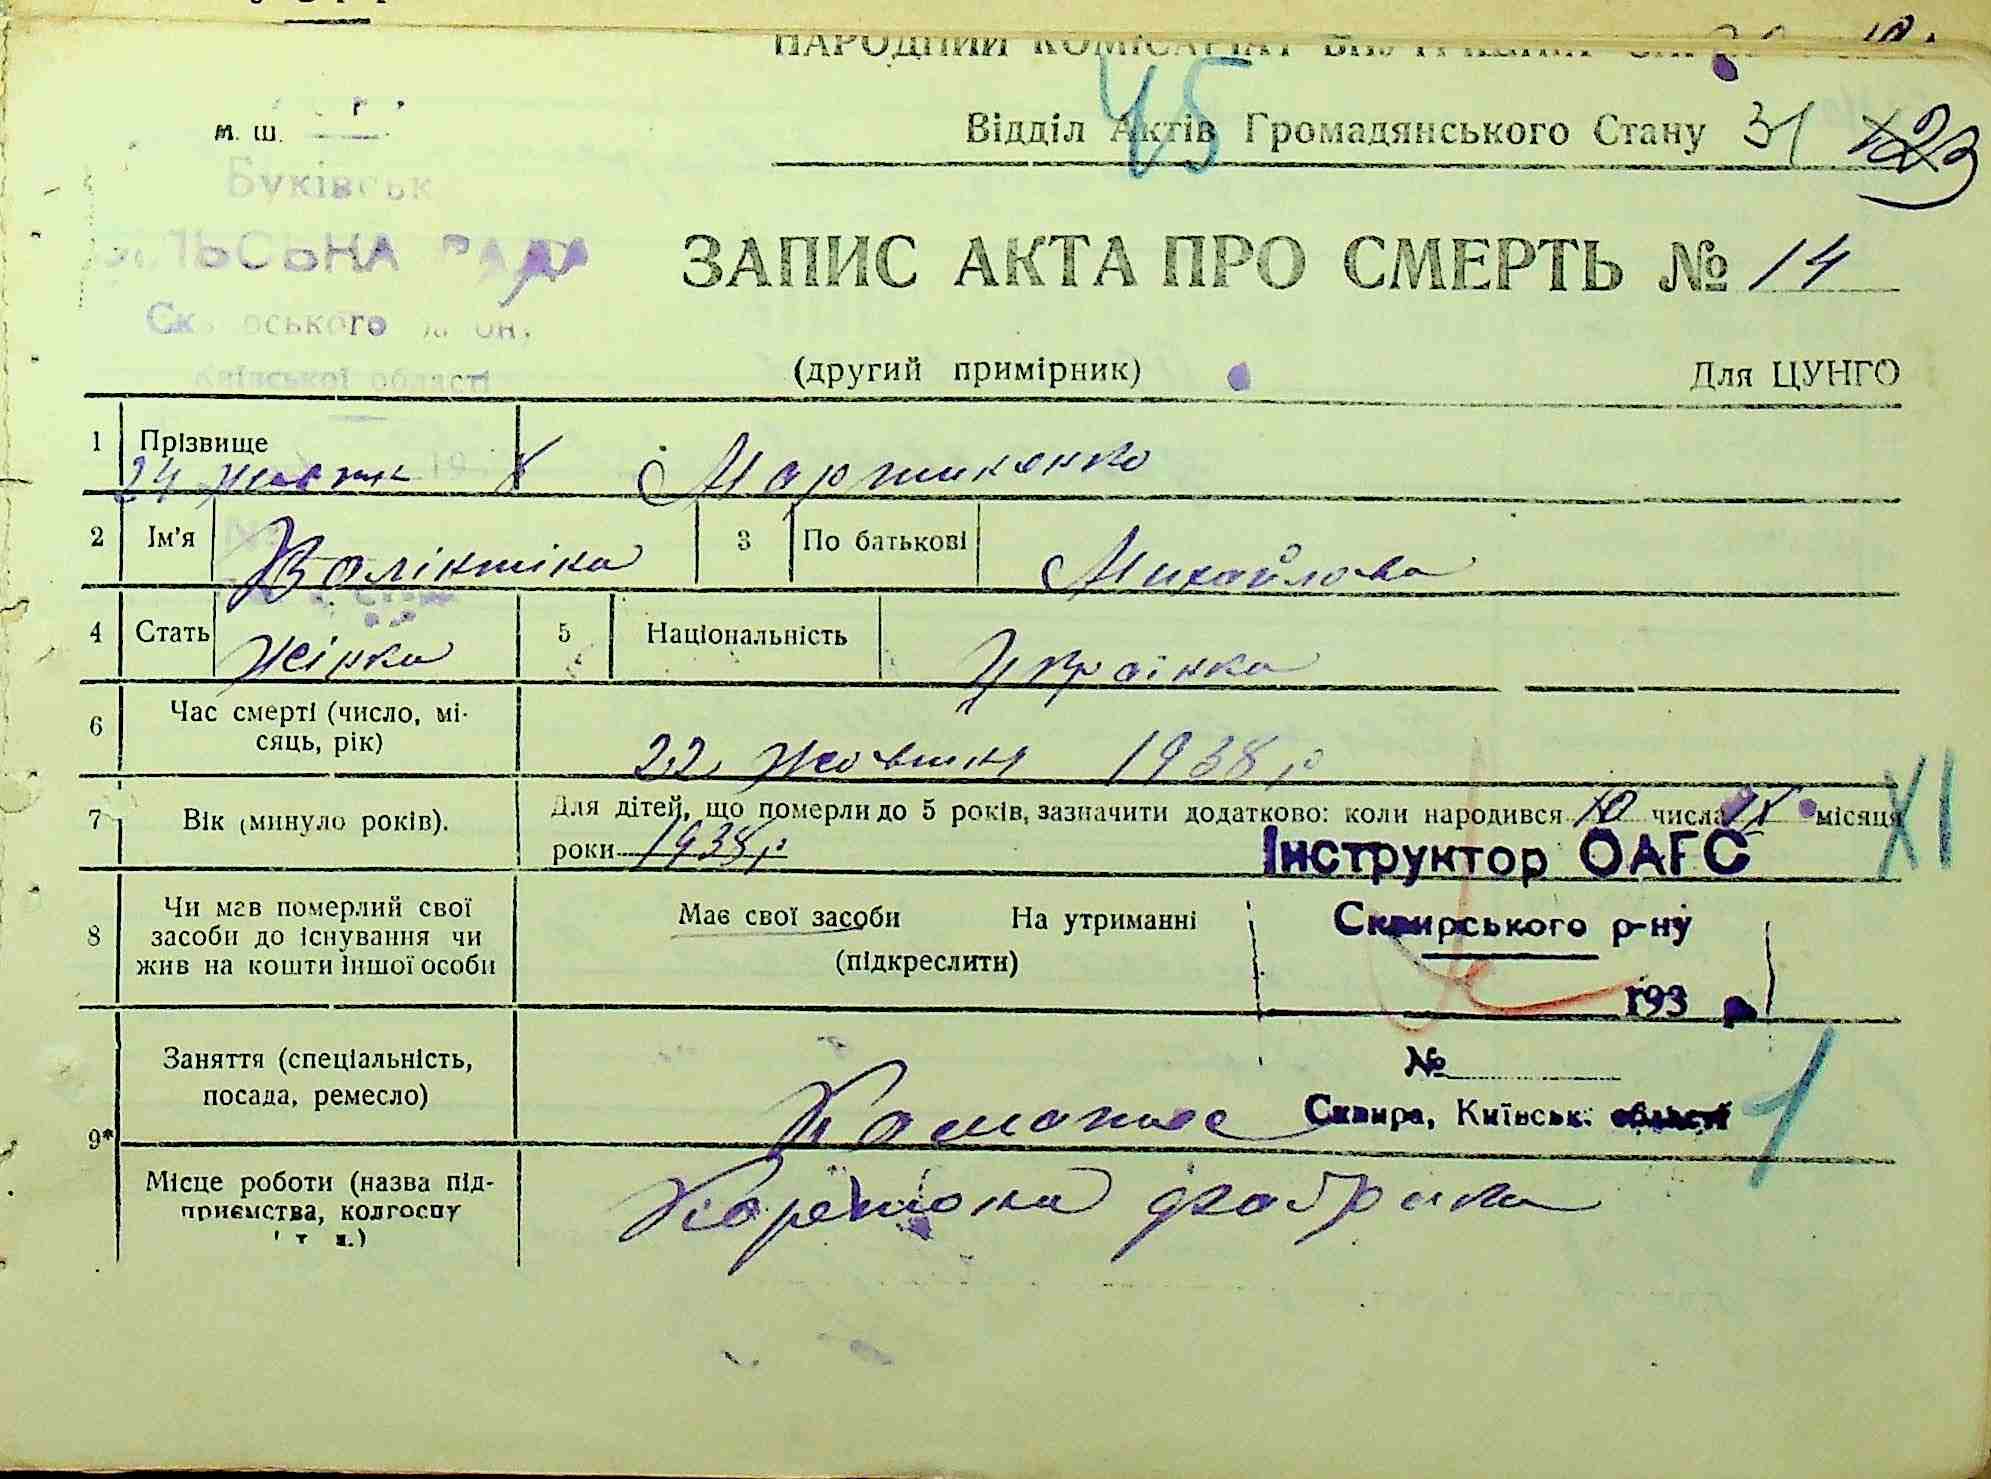 НАРОДНИЙ КОМІСАРІАТ ВНУТРІШНІХ
45
м. ш.
Відділ Актів Громадянського Стану 31 23
Буківськ
СІЛЬСЬКА РАДА
ЗАПИС АКТА ПРО СМЕРТЬ № 14
Сквирського район.
(другий примірник) Для ЦУНГО
Київської області
1 Прізвище Мартиненко
24 жовтн 8
2 Ім'я Валінтіна 3 По батькові Михайлова
4 Стать Жінка 5 Національність Українка
6 Час смерті (число, мі-
сяць, рік) 22 жовтня 1938 р
7 Вік (минуло років). Для дітей, що померли до 5 років, зазначити додатково: коли народився 10 числа IX місяця XI
роки 1938 р
Інструктор ОАГС
8 Чи мав померлий свої
засоби до існування чи
жив на кошти іншої особи
Має свої засоби На утриманні
(підкреслити)
Сквирського р-ну
193
№
Сквира, Київськ. області
1
9* Заняття (спеціальність,
посада, ремесло)
Місце роботи (назва під-
приємства, колгоспу
і т. н.)
фабрика